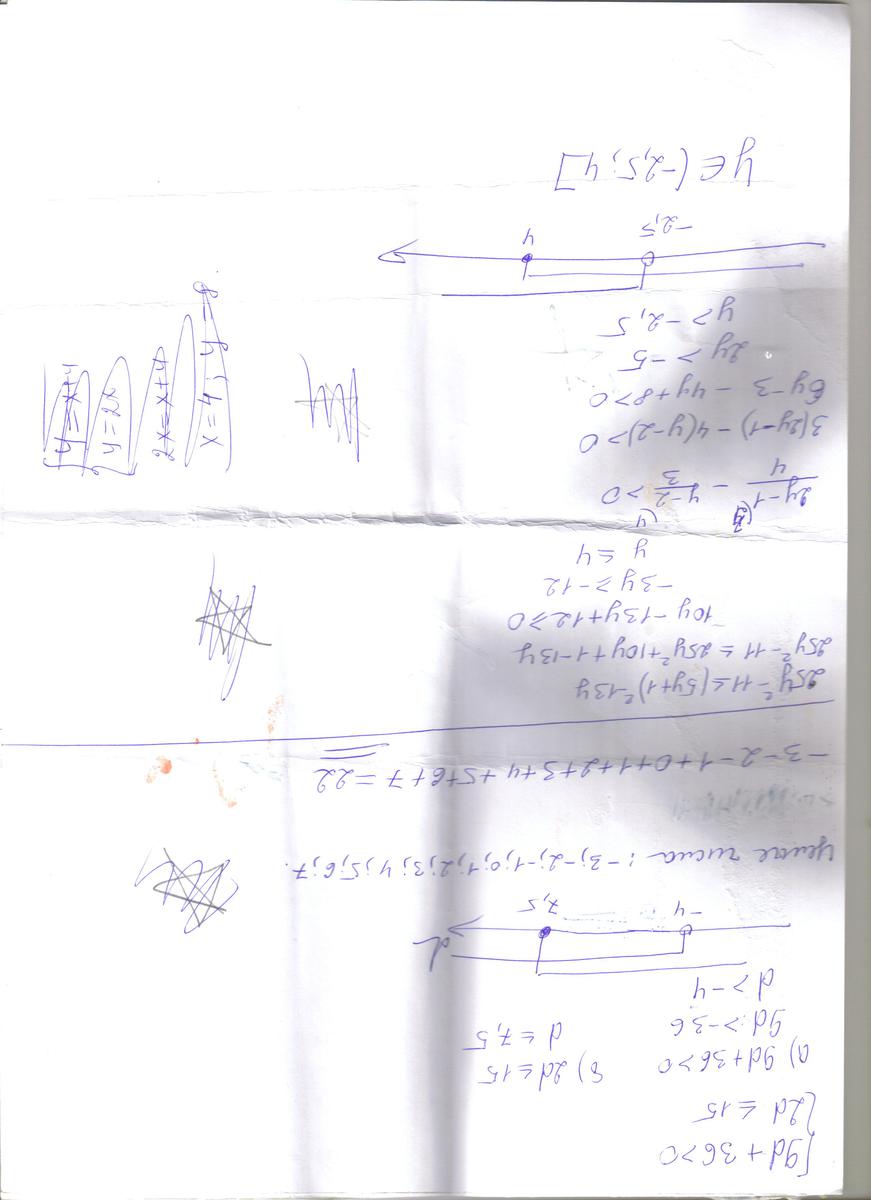 {9d + 36 > 0
{2d ≤ 15
а) 9d + 36 > 0   б) 2d ≤ 15
9d > -36   d ≤ 7,5
d > -4
-4   7,5   d
Целые числа: -3; -2; -1; 0; 1; 2; 3; 4; 5; 6; 7.
-3-2-1+0+1+2+3+4+5+6+7 = 22
25y² - 11 ≤ (5y+1)² - 13y
25y² - 11 ≤ 25y² + 10y + 1 - 13y
10y - 13y + 12 ≥ 0
-3y ≥ -12
y ≤ 4
(2y-1)/4 - (y-2)/3 > 0
3(2y-1) - 4(y-2) > 0
6y - 3 - 4y + 8 > 0
2y > -5
y > -2,5
-2,5   4
y ∈ (-2,5; 4]
{y = x+4
{y = 2x
2x = x+4
x = 4; y = 8